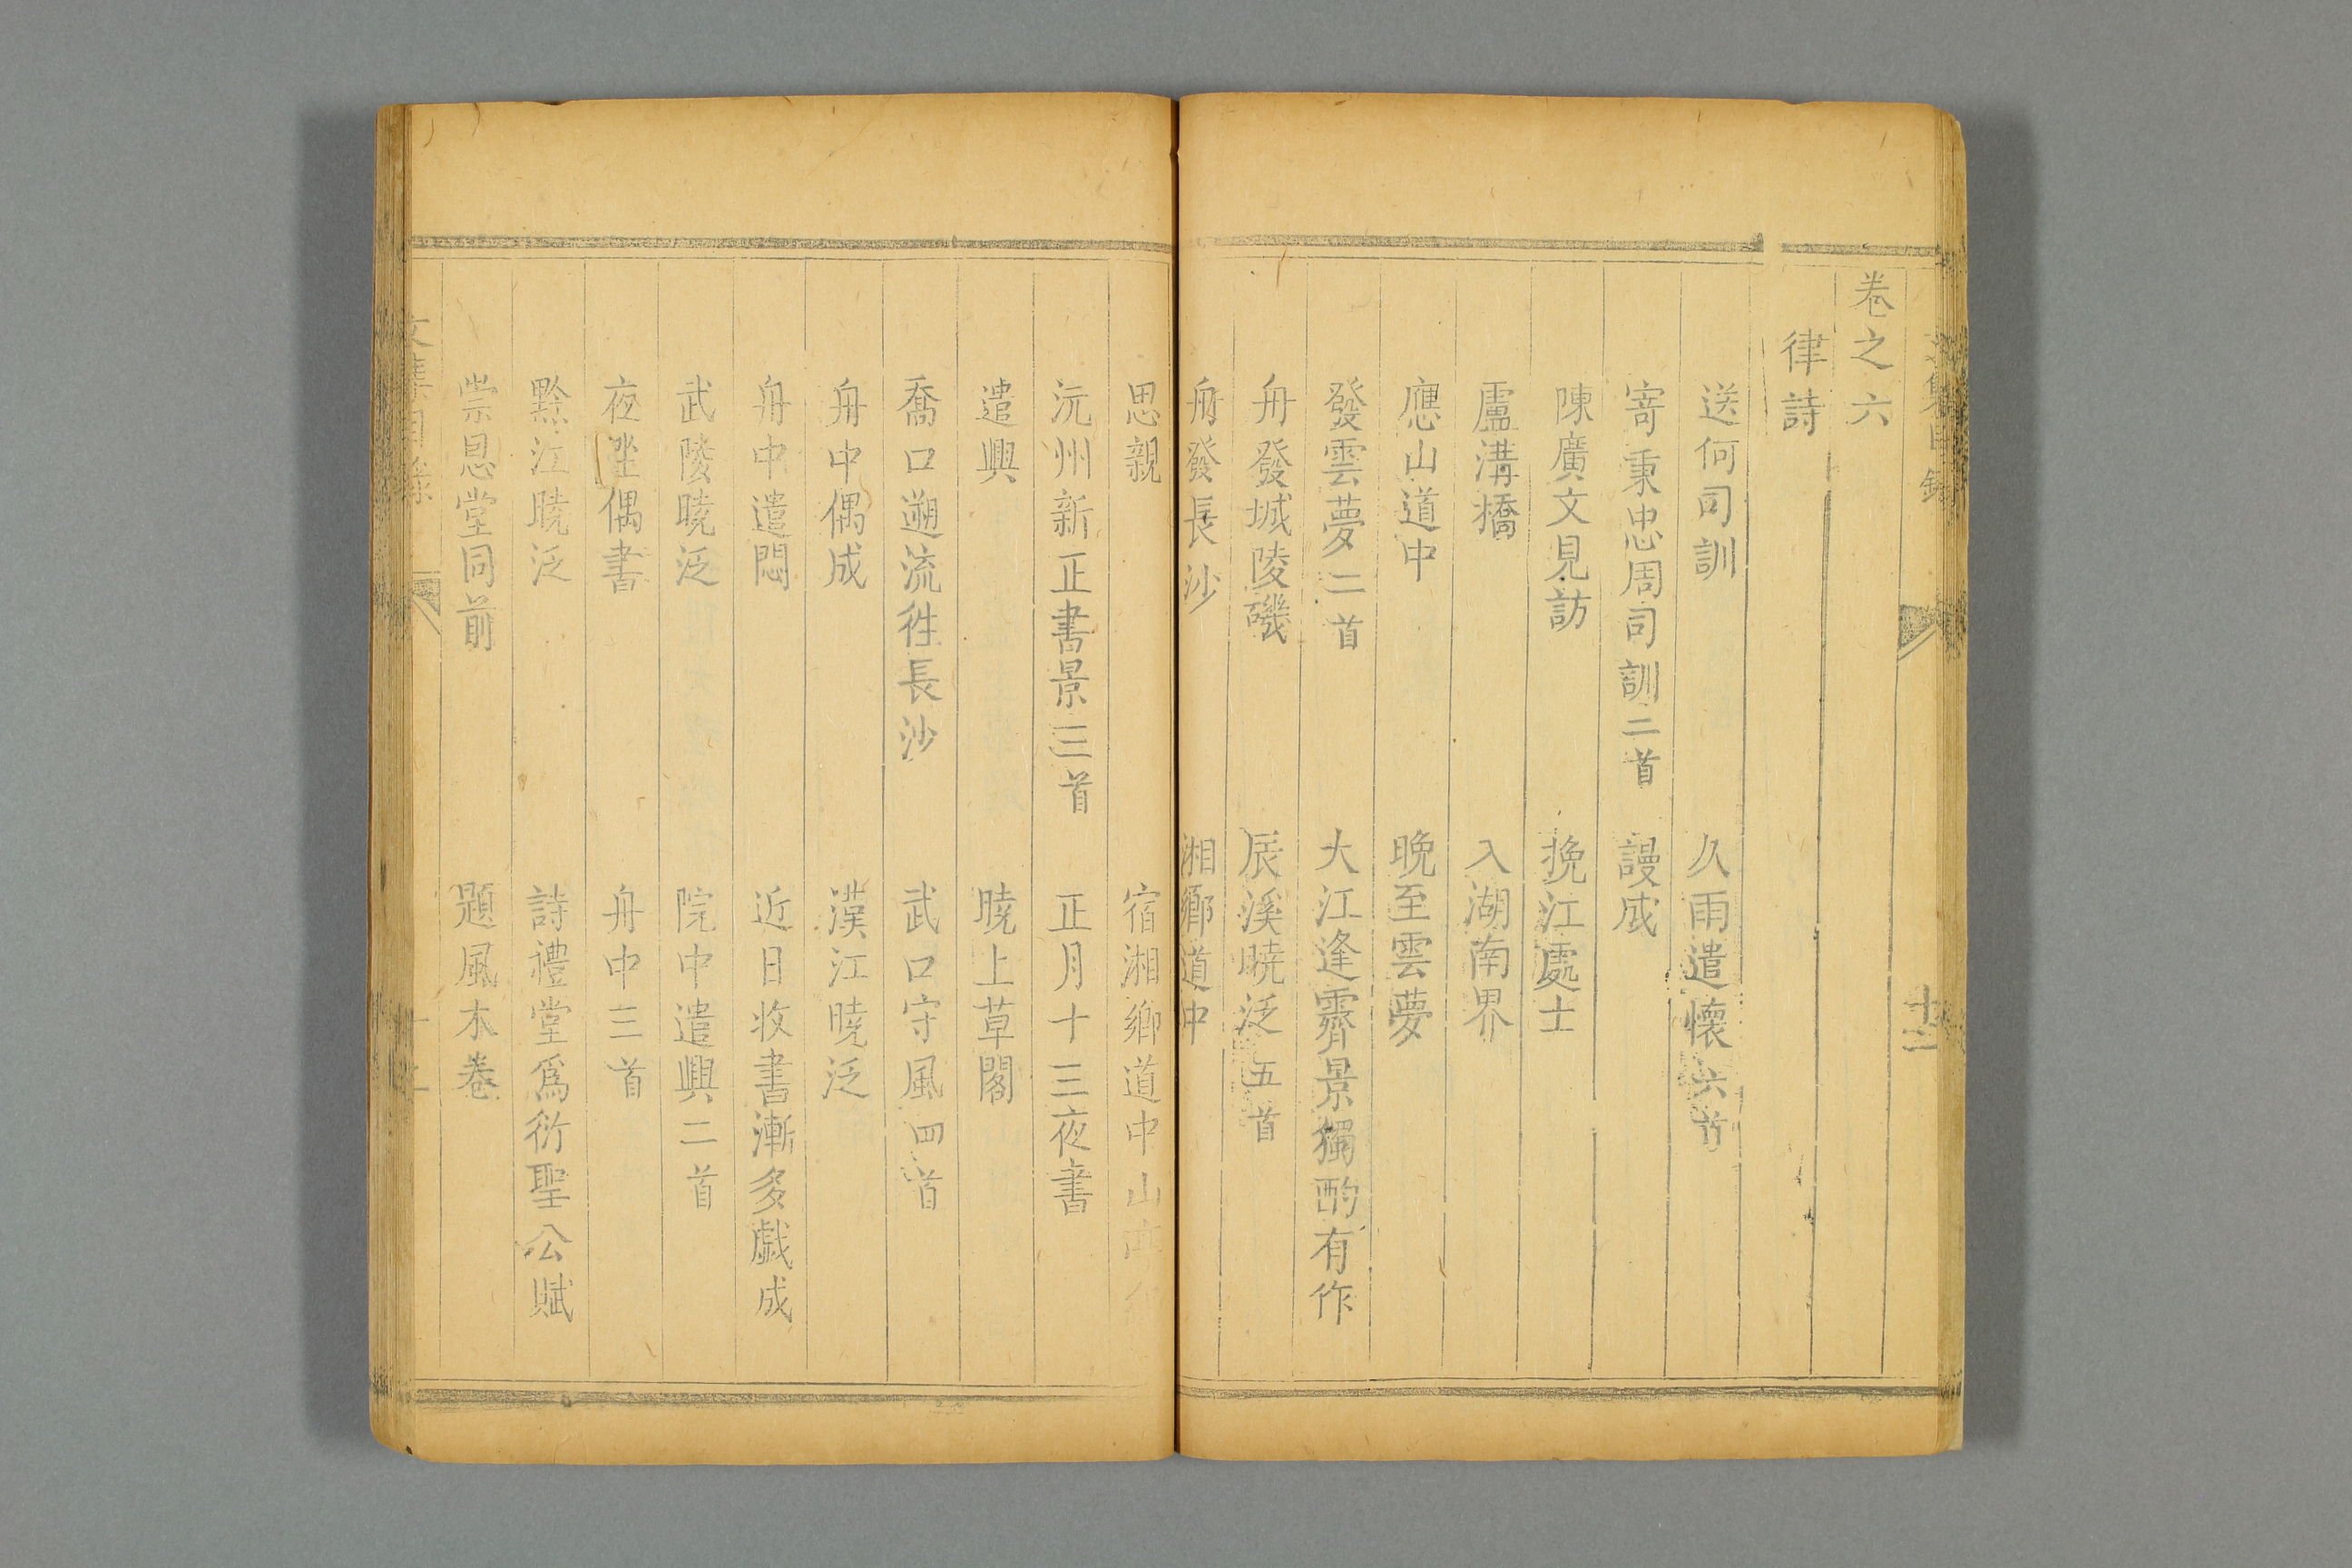 卷之六
律詩
送何司訓　久雨遣懷六首
寄秉忠周司訓二首　謾成
陳廣文見訪　挽江處士
盧溝橋　入湖南界
應山道中　晚至雲夢
發雲夢二首　大江逢霽景獨酌有作
舟發城陵磯　辰溪曉泛五首
舟發長沙　湘鄉道中
思親　宿湘鄉道中山
沅州新正書景三首　正月十三夜書
遣興　曉上草閣
喬口遡流徃長沙　武口守風四首
舟中偶成　漢江曉泛
舟中遣悶　近日收書漸多戲成
武陵曉泛　院中遣興二首
夜坐偶書　舟中三首
黔江曉泛　詩禮堂爲衍聖公賦
崇恩堂同前　題風木卷
文集目錄